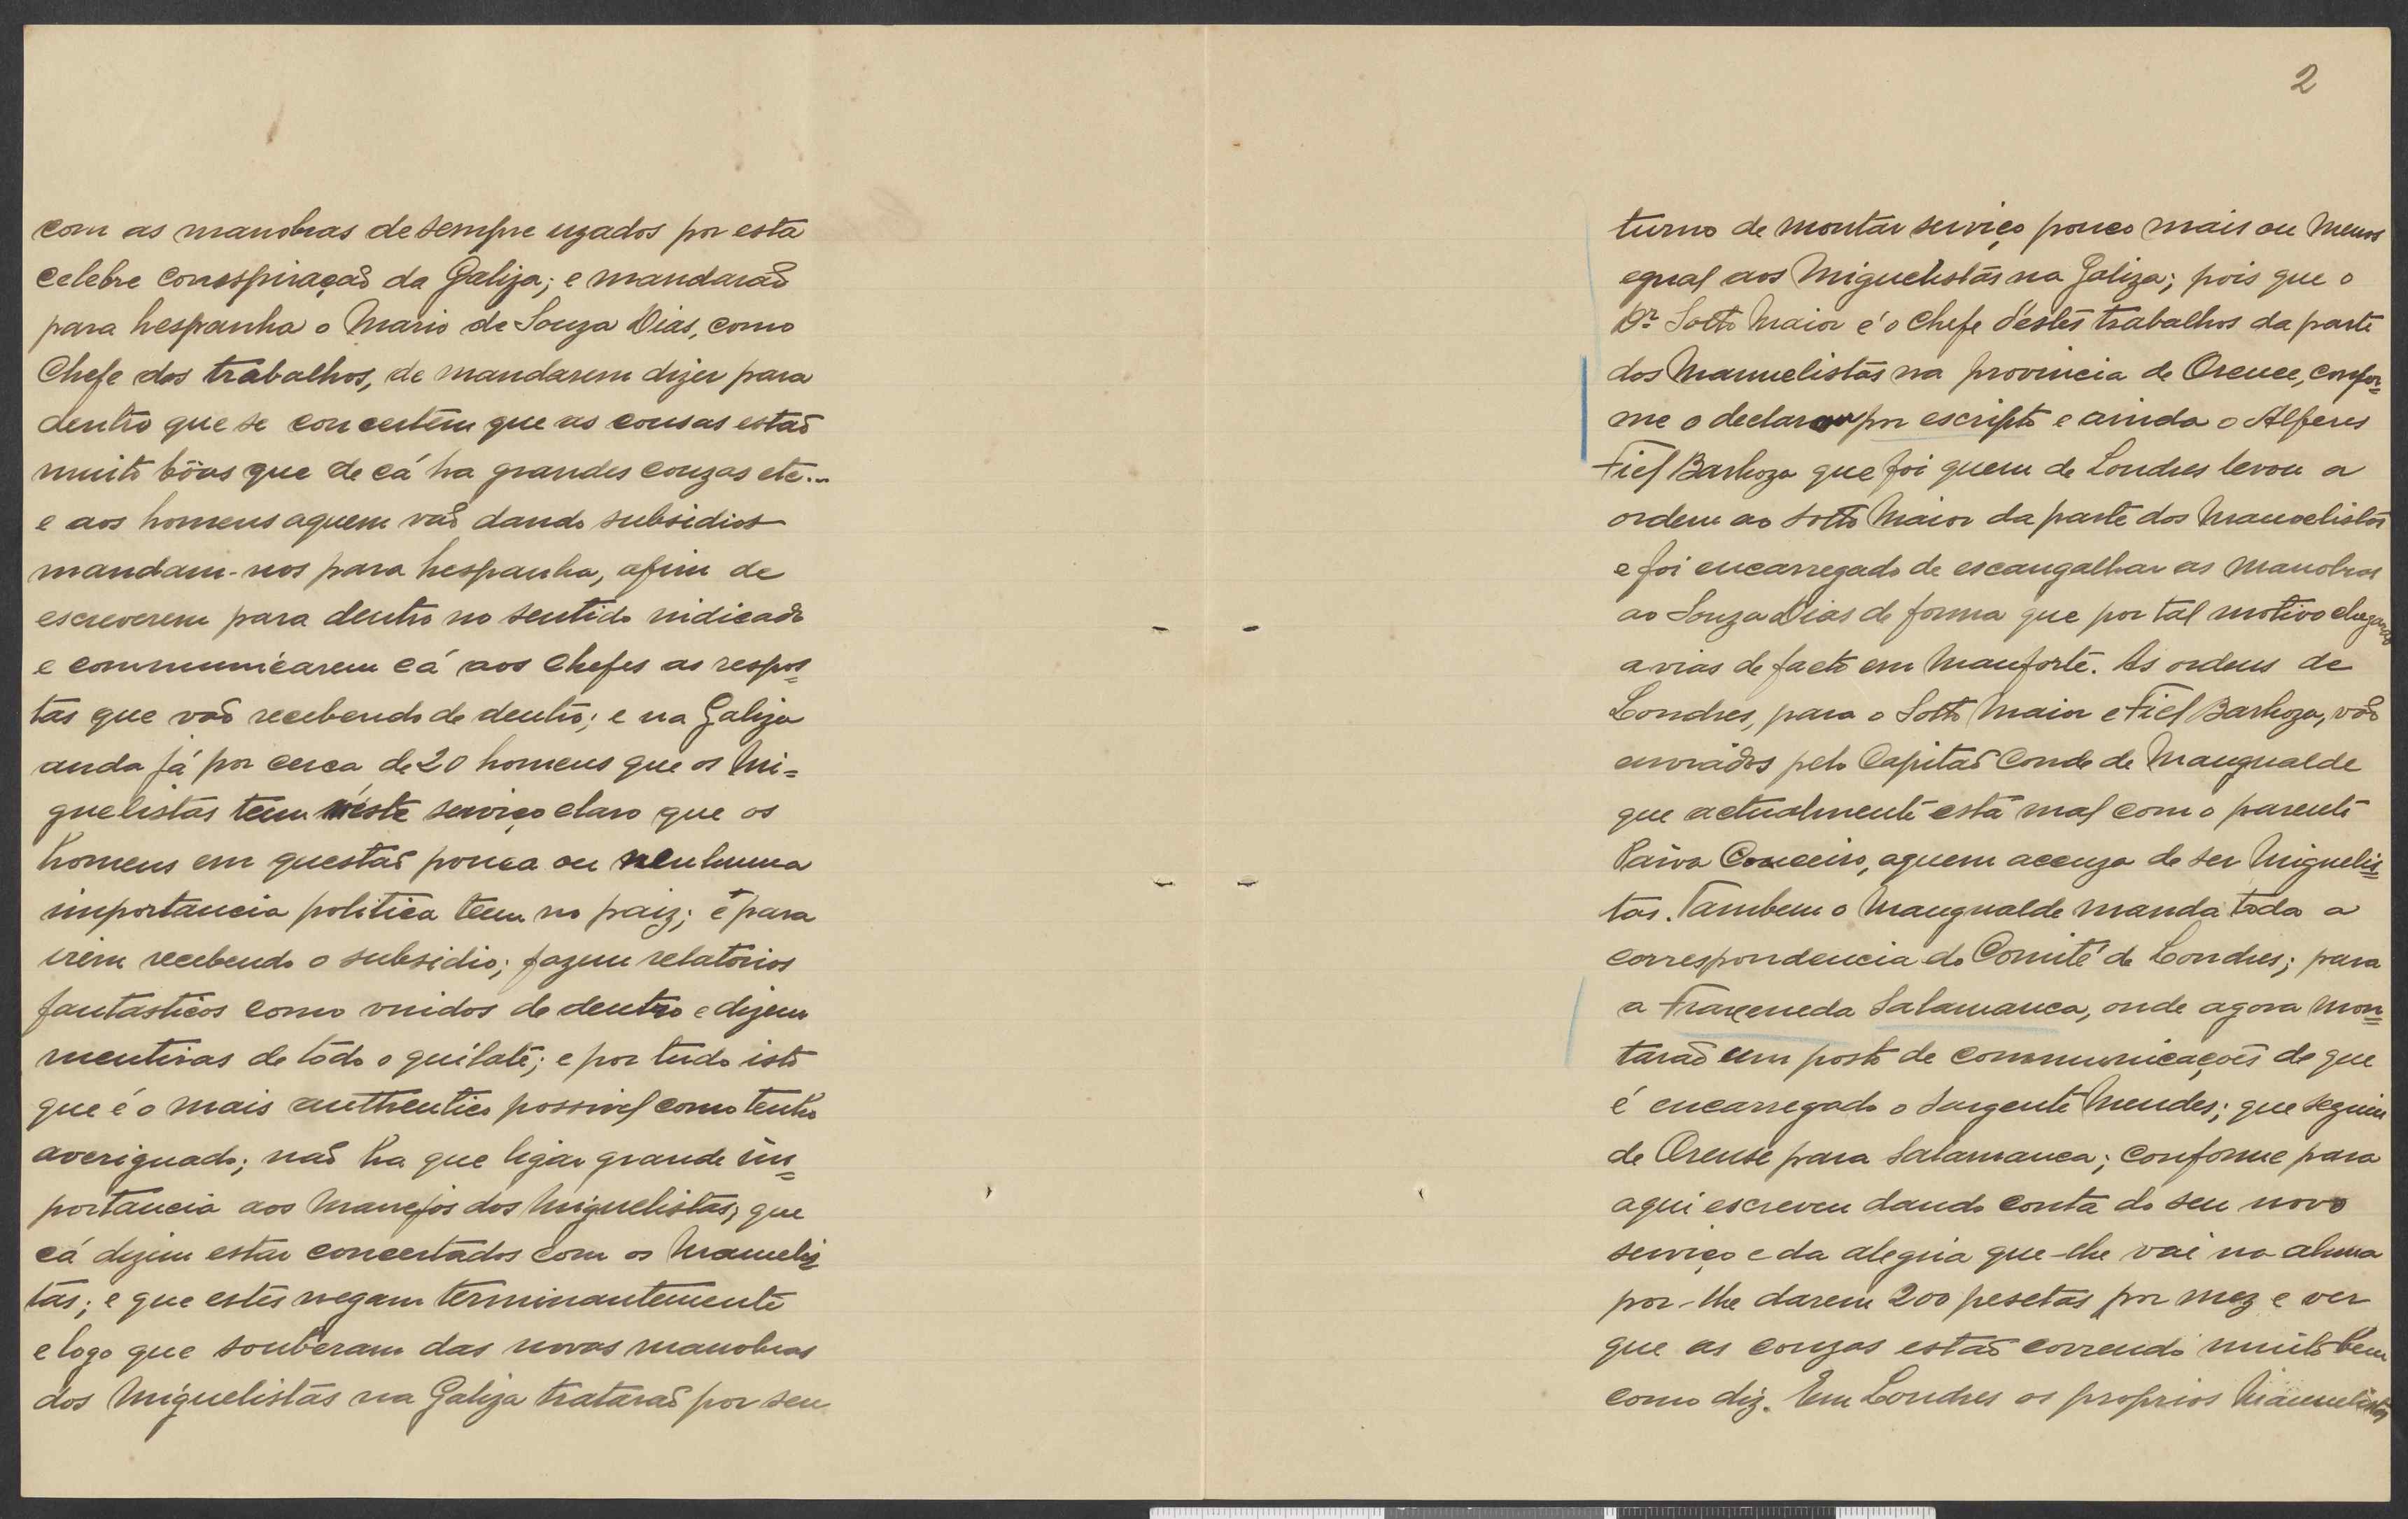 com as manobras de sempre uzados por esta
celebre conspiração da Galiza; e mandarão
para hespanha o Mario de Souza Dias, como
Chefe dos trabalhos, de mandarem dizer para
dentro que se concertem que as cousas estão
muito bôas que de cá ha grandes couzas etc...
e aos homens aquem vão dando subsidios
mandam-nos para hespanha, afim de
escreverem para dentro no sentido indicado
e communicarem cá aos Chefes as respos=
tas que vão recebendo de dentro; e na Galiza
anda já por cerca de 20 homens que os Mi=
guelistas teem n'este serviço claro que os
homens em questão pouca ou nenhuma
importancia politica teem no paiz; é para
irem recebendo o subsidio; fazem relatorios
fantasticos como vindos de dentro e dizem
mentiras de todo o quilate; e por tudo isto
que é o mais authentico possivel como tenho
averiguado; não ha que ligar grande im=
portancia aos Manejos dos Miguelistas, que
cá dizem estar concertados com os Manuelis=
tas; e que estes negam terminantemente
e logo que souberam das novas manobras
dos Miguelistas na Galiza tratarão por seu
2
turno de montar serviço pouco mais ou menos
egual aos Miguelistas na Galiza; pois que o
Dr. Sotto Maior é o Chefe d'estes trabalhos da parte
dos Manuelistas na provincia de Orence, confor=
me o declarou por escripto e ainda o Alferes
Fiel Barboza que foi quem de Londres levou a
ordem ao Sotto Maior da parte dos Manoelistas
e foi encarregado de escangalhar as manobras
ao Souza Dias de forma que por tal motivo chegarão
a vias de facto em Manforte. As ordens de
Londres, para o Sotto Maior e Fiel Barboza, vão
enviádos pelo Capitão Conde de Mangualde
que actualmente está mal com o parente
Paiva Couceiro, aquem accuza de ser Miguelis=
tas. Tambem o Mangualde manda toda a
correspondencia do Comité de Londres; para
a Fraxeneda Salamanca, onde agora mon=
tarão um posto de communicações de que
é encarregado o Sargente Mendes; que seguiu
de Orense para Salamanca; conforme para
aqui escreveu dando conta do seu novo
serviço e da alegria que-lhe vai na alma
por-lhe darem 200 pesetas por mez e ver
que as couzas estão correndo muito bem
como diz. Em Londres os proprios Manuelistas